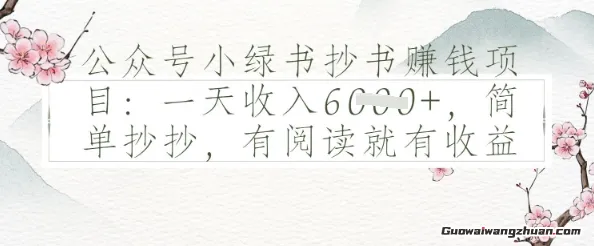 公众号小绿书抄书赚钱项
目：一天收入6000+，简
单抄抄，有阅读就有收益
Guowaiwangzhuan.com